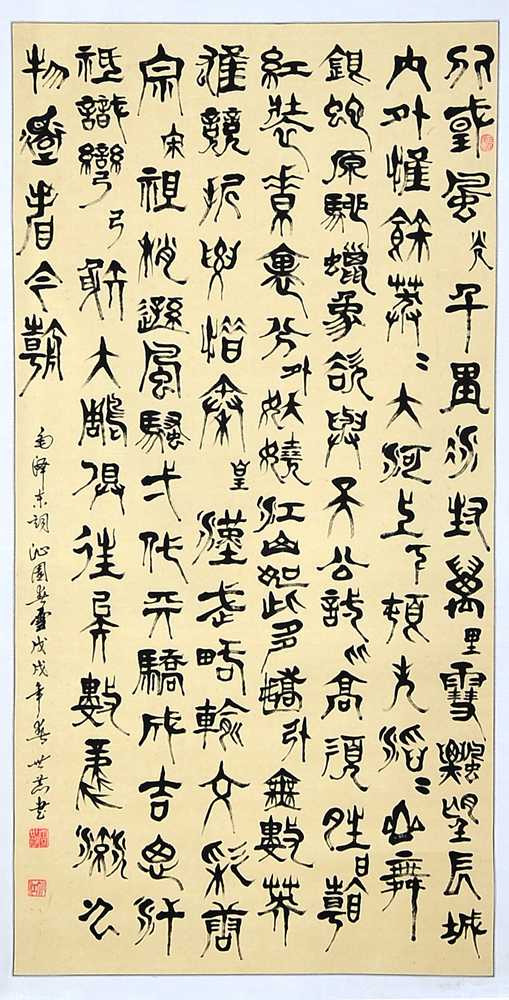 北國風光千里冰封萬里雪飄望長城
內外惟餘莽〻大河上下頓失滔〻山舞
銀蛇原馳蠟象欲與天公試比高須晴日看
紅裝素裹分外妖嬈江山如此多嬌引無數英
雄競折腰惜秦皇漢武略輸文彩唐
宗宋祖稍遜風騷弌代天驕成吉思汗
祗識彎弓射大鵰俱往矣數風流人
物還看今朝
毛泽东詞沁園春雪戊戌年春世书